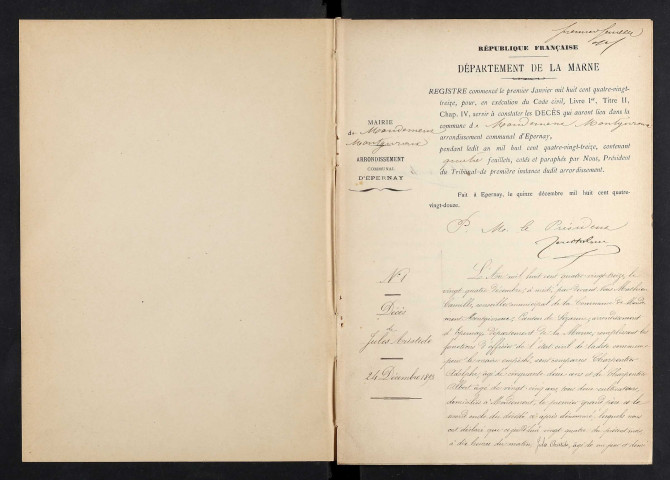 premier feuillet
RÉPUBLIQUE FRANÇAISE
DÉPARTEMENT DE LA MARNE
REGISTRE commencé le premier Janvier mil huit cent quatre-vingt-
treize, pour, en exécution du Code civil, Livre Ier, Titre II,
Chap. IV, servir à constater les DÉCÈS qui auront lieu dans la
commune de Mondement Montgivroux
arrondissement communal d'Epernay,
pendant ledit an mil huit cent quatre-vingt-treize, contenant
feuillets, cotés et paraphés par Nous, Président
du Tribunal de première instance dudit arrondissement.
Fait à Epernay, le quinze décembre mil huit cent quatre-
vingt-douze.
MAIRIE
de Mondement
Montgivroux
ARRONDISSEMENT
COMMUNAL
D'EPERNAY
P. Mr. le Président
N° 1
Décès
de
Jules
24 Décembre
L'An mil huit cent quatre-vingt-treize, le
vingt quatre décembre, à midi, par devant nous
conseiller municipal de la commune de Monde-
ment Montgivroux, Canton de Sézanne, arrondissement
d'Epernay, département de la Marne, remplissant les
fonctions d'officier de l'état civil de ladite commune
pour le maire empêché, sont comparus Charpentier
Adolphe, âgé de cinquante deux ans et de Charpentier
Albert âgé de vingt cinq ans, tous deux cultivateurs,
domiciliés à Mondement, le premier grand père et le
second oncle du décédé ci après dénommé, lesquels nous
ont déclaré que ce jourd'hui vingt quatre du présent mois
à dix heures du matin, Jules âgé de un jour et demi